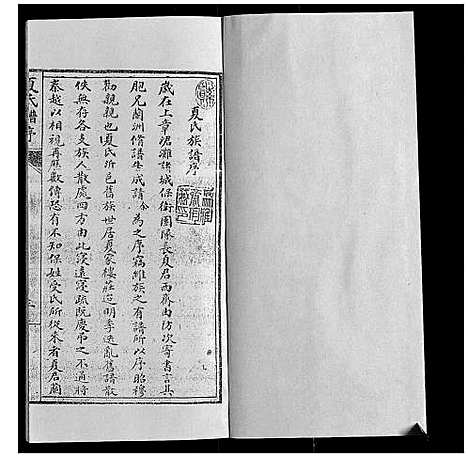 夏氏族譜序
歲在上章涒灘諸城保衛團隊長夏君西齋由防次寄書言其
胞兄蘭洲修譜生成譜余為之序竊維族之有譜所以序昭穆
勸親親也夏氏邑舊族世居夏家樓莊迨明季迭亂舊譜散
佚無存各支族人散處四方由此寖遠寖疏阮慶弔之不通將
秦越以相視再數傳恐有不知保姓受氏所從來者夏君蘭
夏氏譜序